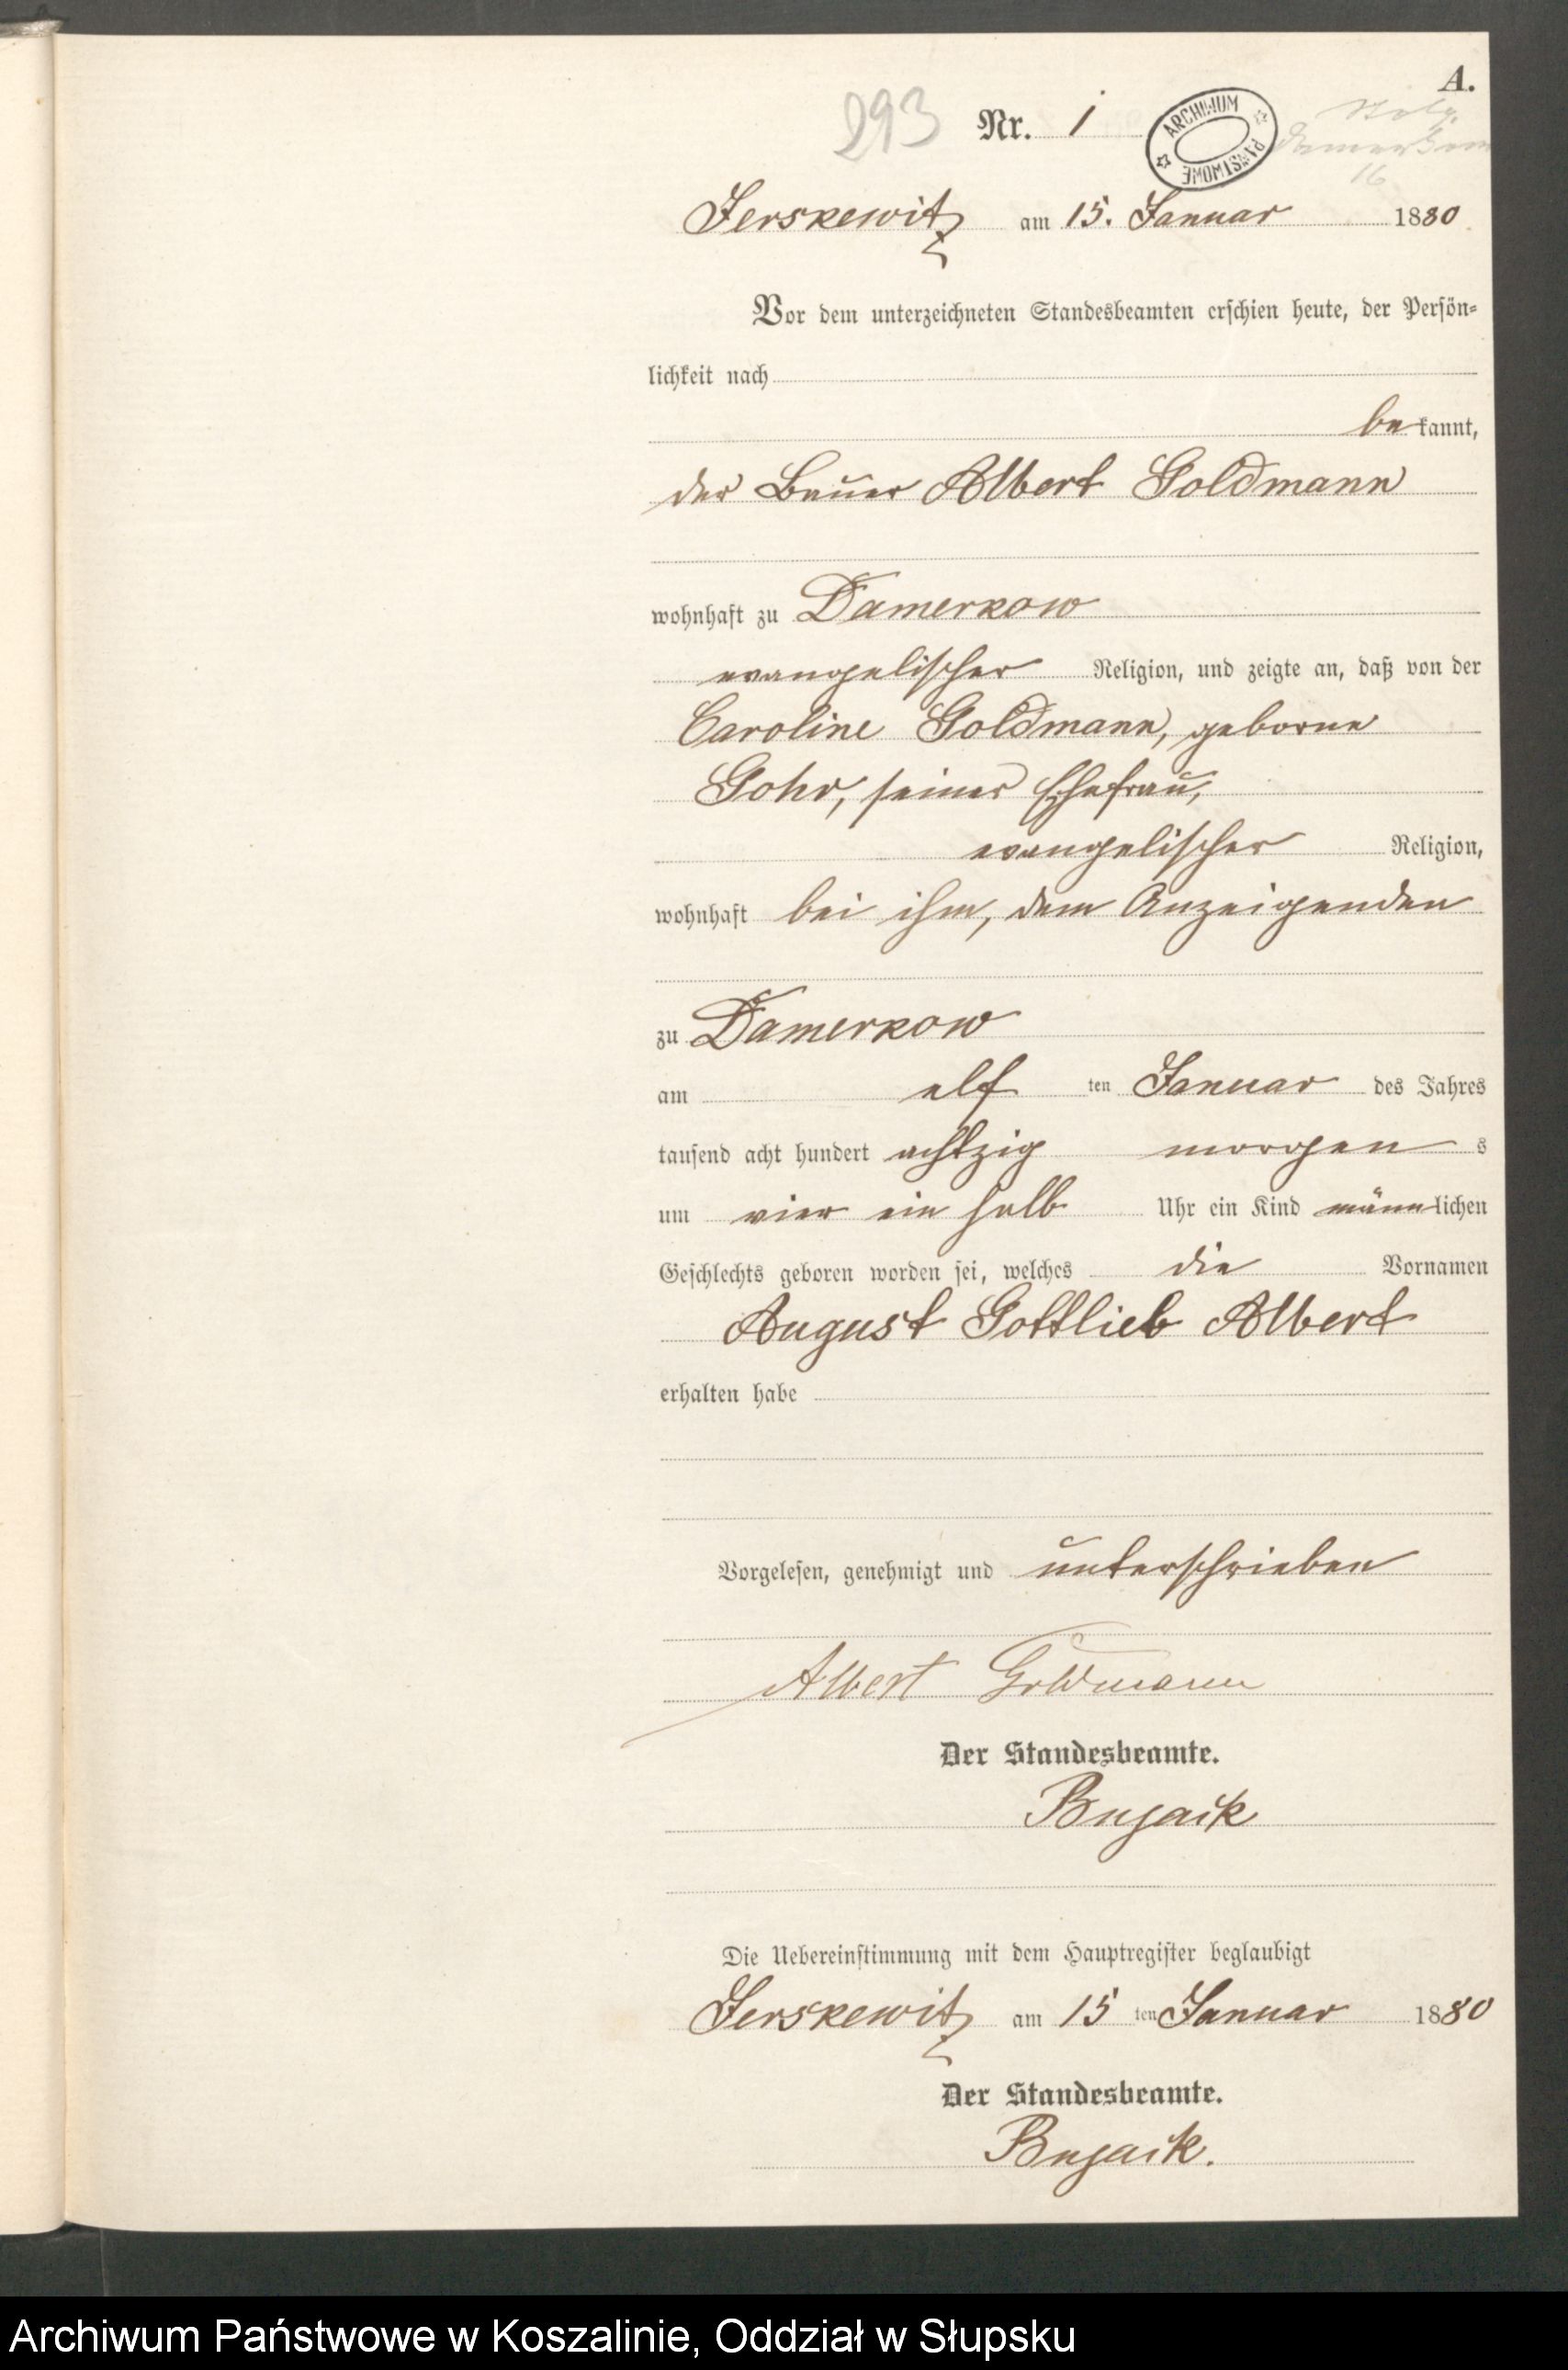 A.
293 Nr. 1
ARCHIWUM PAŃSTWOWE
16
Jerskewitz am 15. Januar 1880
Vor dem unterzeichneten Standesbeamten erschien heute, der Persön-
lichkeit nach
be kannt,
der Bauer Albert Goldmann
wohnhaft zu Damerkow
evangelischer Religion, und zeigte an, daß von der
Caroline Goldmann, geborne
Gohr, seiner Ehefrau,
evangelischer Religion,
wohnhaft bei ihm, dem Anzeigenden
zu Damerkow
am elf ten Januar des Jahres
tausend acht hundert achtzig morgen s
um vier ein halb Uhr ein Kind männlichen
Geschlechts geboren worden sei, welches die Vornamen
August Gottlieb Albert
erhalten habe
Vorgelesen, genehmigt und unterschrieben
Albert Goldmann
Der Standesbeamte.
Bujack
Die Uebereinstimmung mit dem Hauptregister beglaubigt
Jerskewitz am 15 ten Januar 1880
Der Standesbeamte.
Bujack.
Archiwum Państwowe w Koszalinie, Oddział w Słupsku